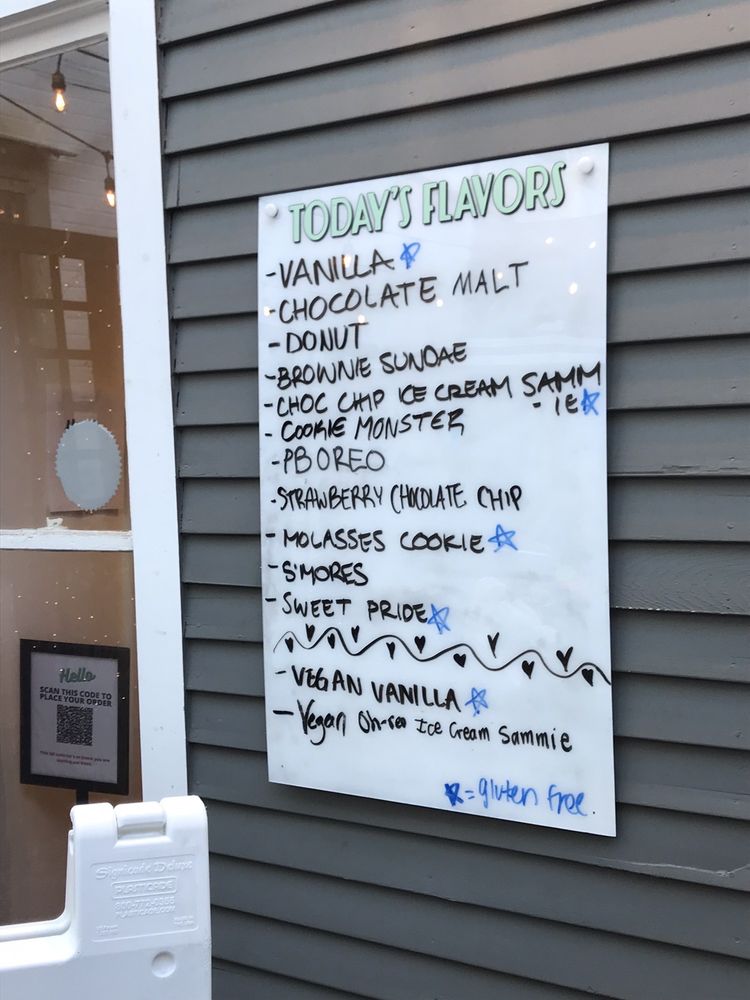 TODAY'S FLAVORS
-VANILLA☆
-CHOCOLATE MALT
-DONUT
-BROWNIE SUNDAE
-CHOC CHIP ICE CREAM SAMM
-IE☆
-COOKIE MONSTER
-PB OREO
-STRAWBERRY CHOCOLATE CHIP
-MOLASSES COOKIE☆
-S'MORES
-SWEET PRIDE☆
-VEGAN VANILLA☆
-Vegan Oh-reo Ice Cream Sammie
☆=gluten free.
Hello
SCAN THIS CODE TO
PLACE YOUR ORDER
Signicade Deluxe
PLASTICADE
800-772-0355
PLASTICADE.COM